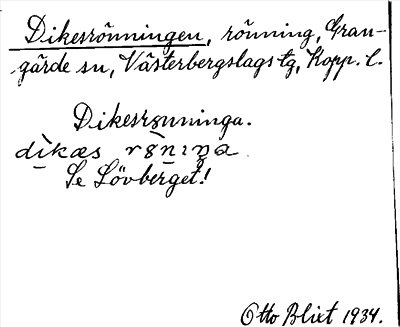 Dikesrönningen, rönning, Gran-
gärde sn, Västerbergslags tg, Kopp. l.
Dikesrønninga.
Se Lövberget!
Otto Blixt 1934.